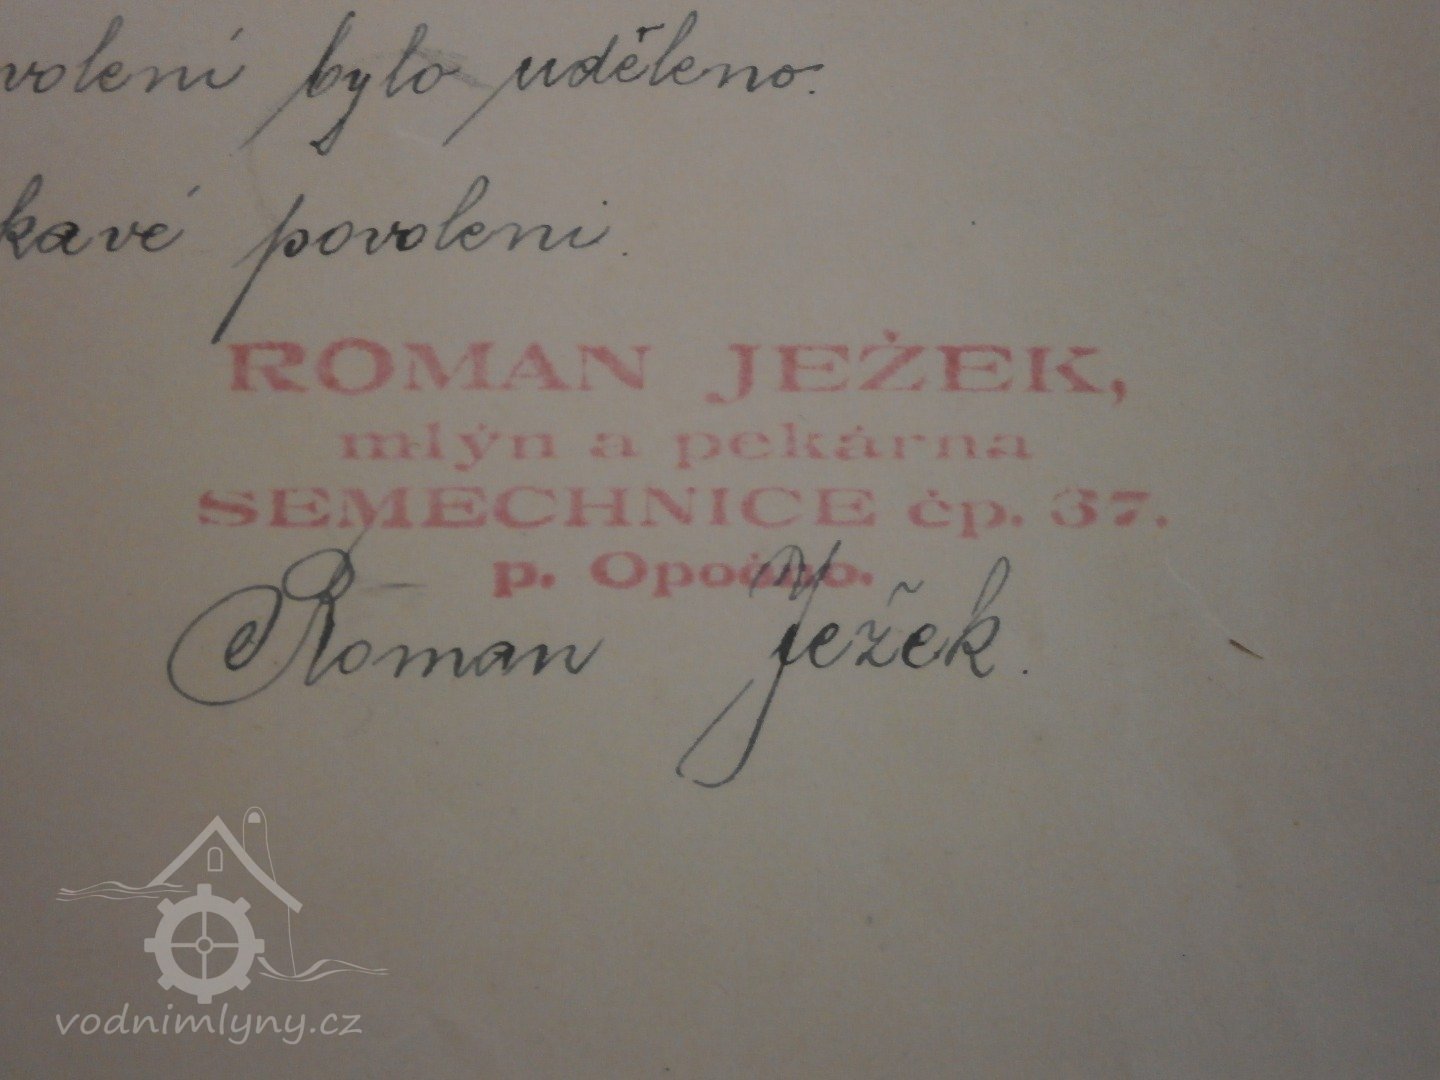 volení bylo uděleno.
kavé povoleni.
ROMAN JEŽEK,
mlýn a pekárna
SEMECHNICE čp. 37.
p. Opočno.
Roman Ježek.
vodnimlyny.cz